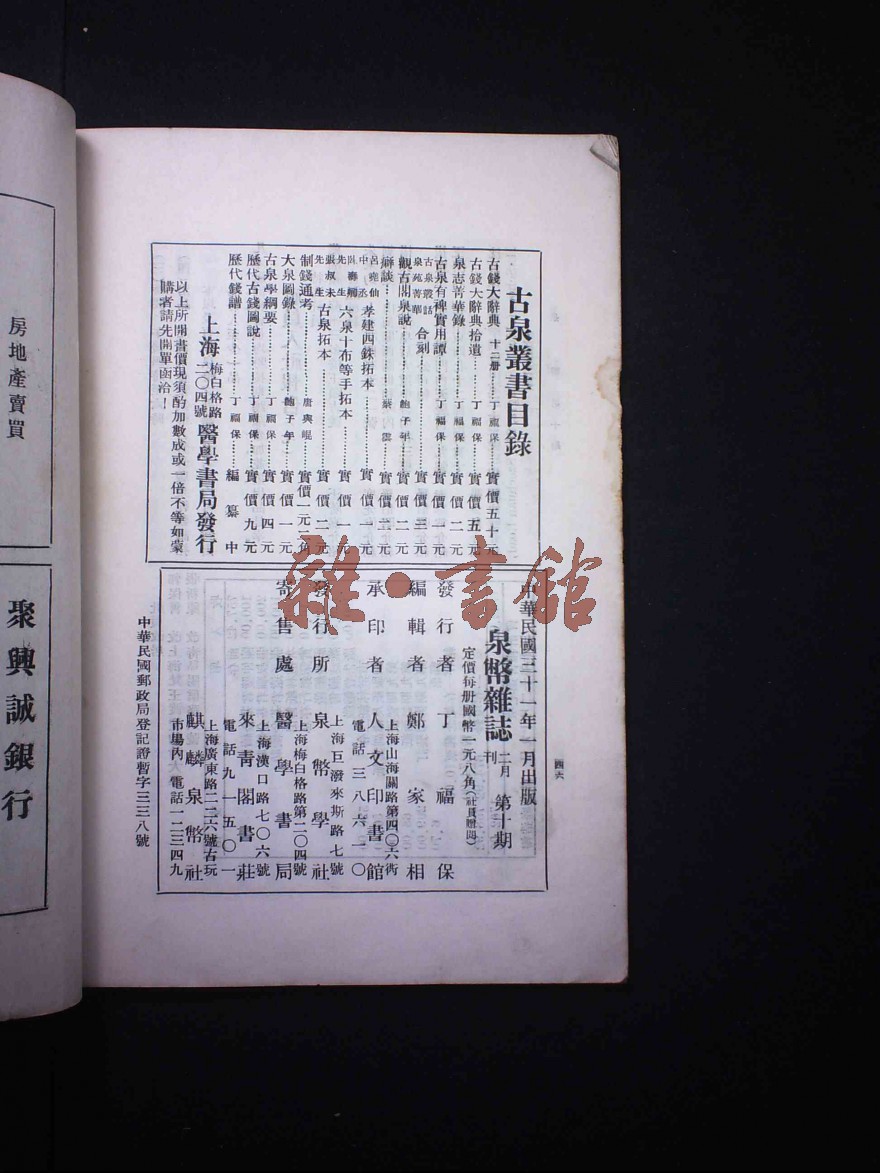 古泉叢書目錄
古錢大辭典 十二册……丁福保……實價五十元
古錢大辭典拾遺……丁福保……實價五元
泉志菁華錄……丁福保……實價二元
古泉有裨實用譚……丁福保……實價一元
古泉叢話 泉苑菁華 合刻……實價三元
觀古閣泉說……鮑子年……實價二元
癖談……蔡雲……實價二元
呂堯仙中丞 孝建四銖拓本……實價一元
臥壽桐先生 六泉十布等手拓本……實價一元
張叔未先生 古泉拓本……實價二元
制錢通考……唐與崐……實價一元二角
大泉圖錄……鮑子年……實價一元
古泉學綱要……丁福保……實價四元
歷代古錢圖說……丁福保……實價九元
歷代錢譜……丁福保……編纂中
上海 梅白格路二〇四號 醫學書局發行
以上所開書價現須酌加數成或一倍不等如蒙
購者請先開單函洽
中華民國三十一年一月出版
泉幣雜誌 二月刊 第十期
定價每册國幣一元八角(社員贈閱)
發行者 丁福保
編輯者 鄭家相
上海山海關路第四〇六衖
承印者 人文印書館
電話三八六一〇
上海巨潑來斯路七號
發行所 泉幣學社
上海梅白格路第二〇四號
寄售處 醫學書局
上海漢口路七〇六號
來青閣書莊
電話九一五〇一
上海廣東路二二六號古玩
麒麟泉幣社
市場內 電話一二三四九
中華民國郵政局登記證暫字三三八號
四六
房地產賣買
聚興誠銀行
雜·書館